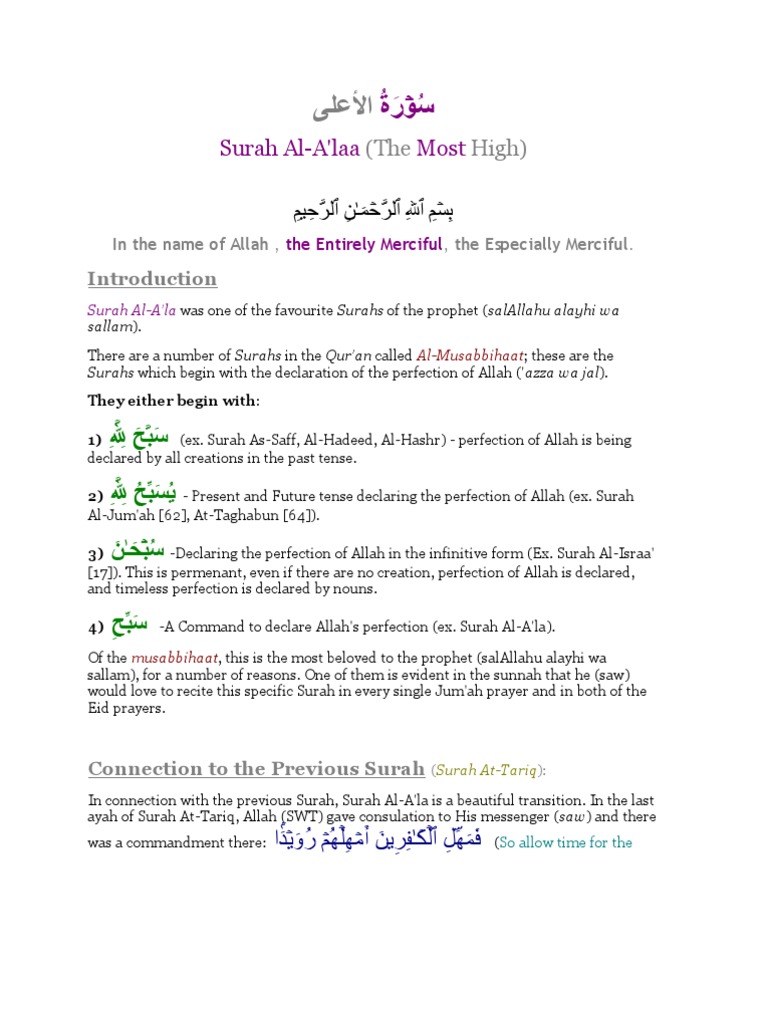 سُوۡرَةُ الأعلى
Surah Al-A'laa (The Most High)
بِسۡمِ ٱللهِ ٱلرَّحۡمَـٰنِ ٱلرَّحِيمِ
In the name of Allah , the Entirely Merciful, the Especially Merciful.
Introduction
Surah Al-A'la was one of the favourite Surahs of the prophet (salAllahu alayhi wa
sallam).
There are a number of Surahs in the Qur'an called Al-Musabbihaat; these are the
Surahs which begin with the declaration of the perfection of Allah ('azza wa jal).
They either begin with:
1) سَبَّحَ لِلَّهِ (ex. Surah As-Saff, Al-Hadeed, Al-Hashr) - perfection of Allah is being
declared by all creations in the past tense.
2) يُسَبِّحُ لِلَّهِ - Present and Future tense declaring the perfection of Allah (ex. Surah
Al-Jum'ah [62], At-Taghabun [64]).
3) سُبۡحَـٰنَ -Declaring the perfection of Allah in the infinitive form (Ex. Surah Al-Israa'
[17]). This is permenant, even if there are no creation, perfection of Allah is declared,
and timeless perfection is declared by nouns.
4) سَبِّحِ -A Command to declare Allah's perfection (ex. Surah Al-A'la).
Of the musabbihaat, this is the most beloved to the prophet (salAllahu alayhi wa
sallam), for a number of reasons. One of them is evident in the sunnah that he (saw)
would love to recite this specific Surah in every single Jum'ah prayer and in both of the
Eid prayers.
Connection to the Previous Surah (Surah At-Tariq):
In connection with the previous Surah, Surah Al-A'la is a beautiful transition. In the last
ayah of Surah At-Tariq, Allah (SWT) gave consulation to His messenger (saw) and there
was a commandment there: فَمَهِّلِ ٱلۡكَـٰفِرِينَ أَمۡهِلۡهُمۡ رُوَيۡدَۢا (So allow time for the